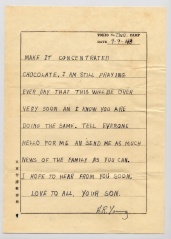 TOKIO CAMP
DATE
MAKE IT CONSENTRATED
CHOCOLATE. I AM STILL PRAYING
EVER DAY THAT THIS WILL BE OVER
VERY SOON AN I KNOW YOU ARE
DOING THE SAME. TELL EVERONE
HELLO FOR ME AN SEND ME AS MUCH
NEWS OF THE FAMILY AS YOU CAN.
I HOPE TO HEAR FROM YOU SOON.
LOVE TO ALL, YOUR SON.